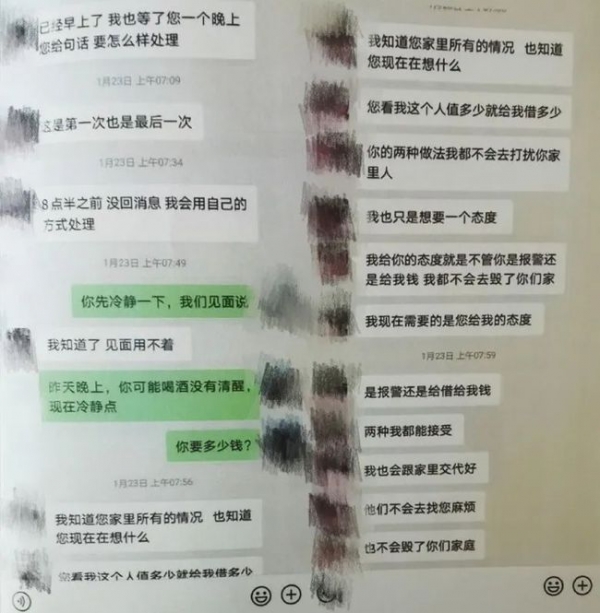 已经早上了 我也等了您一个晚上
您给句话 要怎么样处理
1月23日 上午07:09
这是第一次也是最后一次
1月23日 上午07:34
8点半之前 没回消息 我会用自己的
方式处理
1月23日 上午07:49
你先冷静一下，我们见面说
我知道了 见面用不着
昨天晚上，你可能喝酒没有清醒，
现在冷静点
你要多少钱？
1月23日 上午07:56
我知道您家里所有的情况 也知道
您现在在想什么
您看我这个人值多少就给我借多少
我知道您家里所有的情况 也知道
您现在在想什么
您看我这个人值多少就给我借多少
你的两种做法我都不会去打扰你家
里人
我也只是想要一个态度
我给你的态度就是不管你是报警还
是给我钱 我都不会去毁了你们家
我现在需要的是您给我的态度
1月23日 上午07:59
是报警还是给借给我钱
两种我都能接受
我也会跟家里交代好
他们不会去找您麻烦
也不会毁了你们家庭